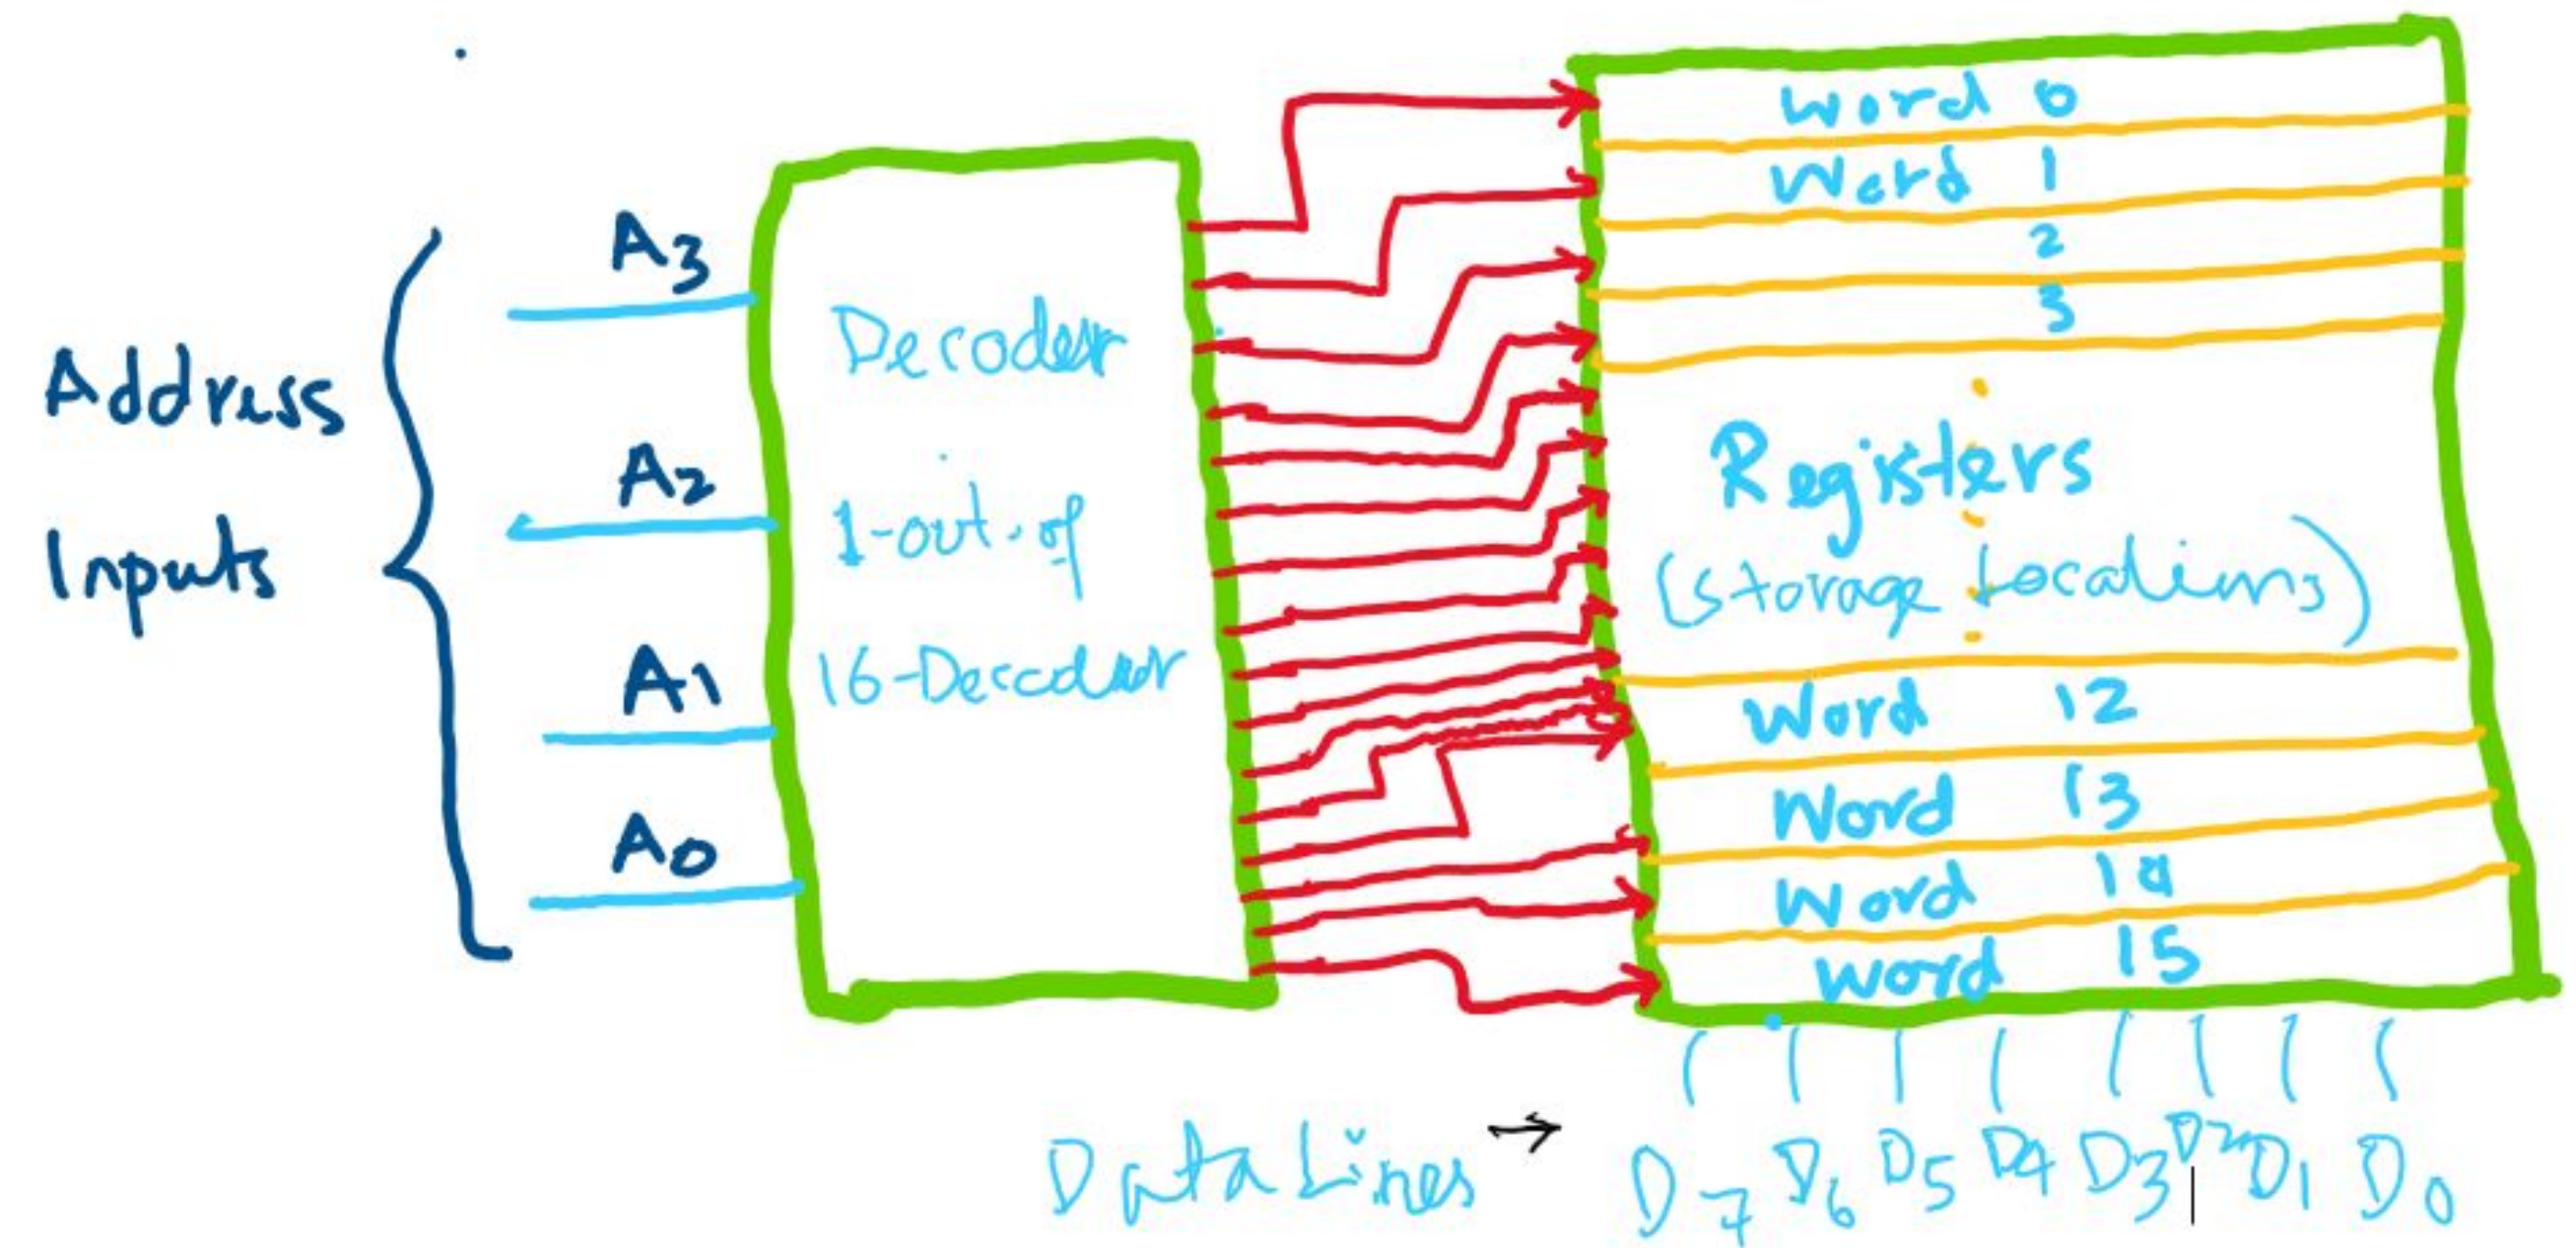 Address
Inputs
A3
A2
A1
A0
Decoder
1-out-of
16-Decoder
Word 0
Word 1
2
3
Registers
(Storage Locations)
Word 12
Word 13
Word 14
Word 15
Data Lines → D7 D6 D5 D4 D3 D2 D1 D0